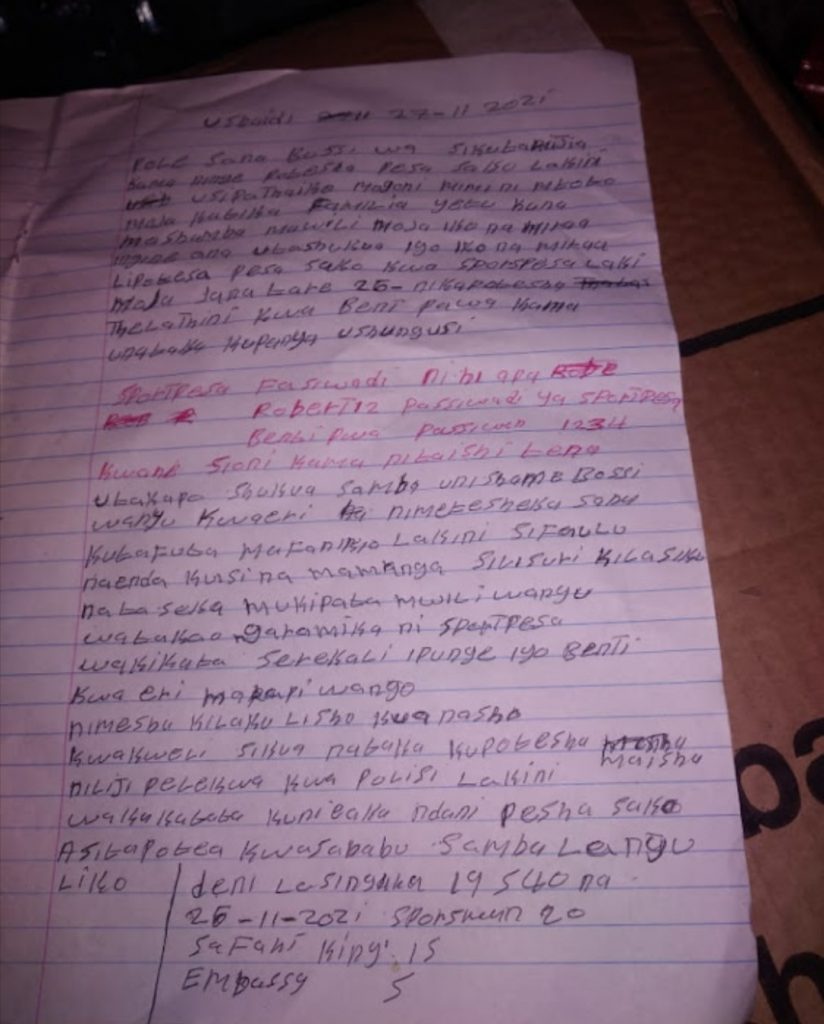 Usbaidi 27-11 2021
Pole sana Bossi wa
kama nime Potesha pesa sako Lakini
usipathaike Maganf mimi ni mtoto
moja katika Familia yetu kuna
Mashamba mawili moja iko na miraa
ingine ana utashukua iyo iko na miraa
Lipotesa pesa sako kwa sporspesa Laki
moja Jana tare 26- nikapotesha
Thelathini kwa Beni pawa kama
unataka kupanga ushungusi
Sportpesa Fasiwadi ni hi apa
Robert12 passiwadi ya sportpesa
Benti pwa passiwen 1234
Kwani sioni kama nitaishi tena
utakapo shukua samba unishame Bossi
wangu kwaeri nimetesheka sana
kutafuta mafanikio Lakini sifaulu
naenda kursina mamanga silisuri kilasiku
nataseka mukipata mwili wangu
watukao ngaramika ni sportpesa
wakikata serekali ipunge iyo Benti
kwa eri makapi wango
nimeshu kilaku lisho kwa nasho
kwakweli sikua nataka kupotesha
maisha
niliji pelekwa kwa polisi Lakini
wakakataa kuniealla ndani pesha sako
Asitapotea kwasababu samba Langu
Liko
deni Lasingaka 19 540 na
26-11-2021 sporskwn 20
Safari king' 15
Embassy 5